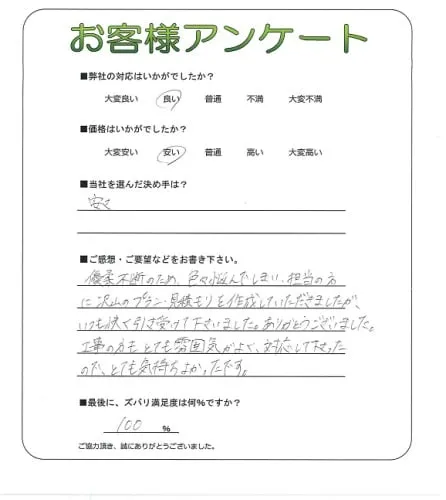 お客様アンケート
■弊社の対応はいかがでしたか？
大変良い 良い 普通 不満 大変不満
■価格はいかがでしたか？
大変安い 安い 普通 高い 大変高い
■当社を選んだ決め手は？
安さ
■ご感想・ご要望などをお書き下さい。
優柔不断のため、色々悩んでしまい、担当の方
に沢山のプラン・見積もりを作成していただきましたが、
いつも快く引き受けて下さいました。ありがとうございました。
工事の方もとても雰囲気がよく、対応して下さった
ので、とても気持ちよかったです。
■最後に、ズバリ満足度は何%ですか？
100 %
ご協力頂き、誠にありがとうございました。